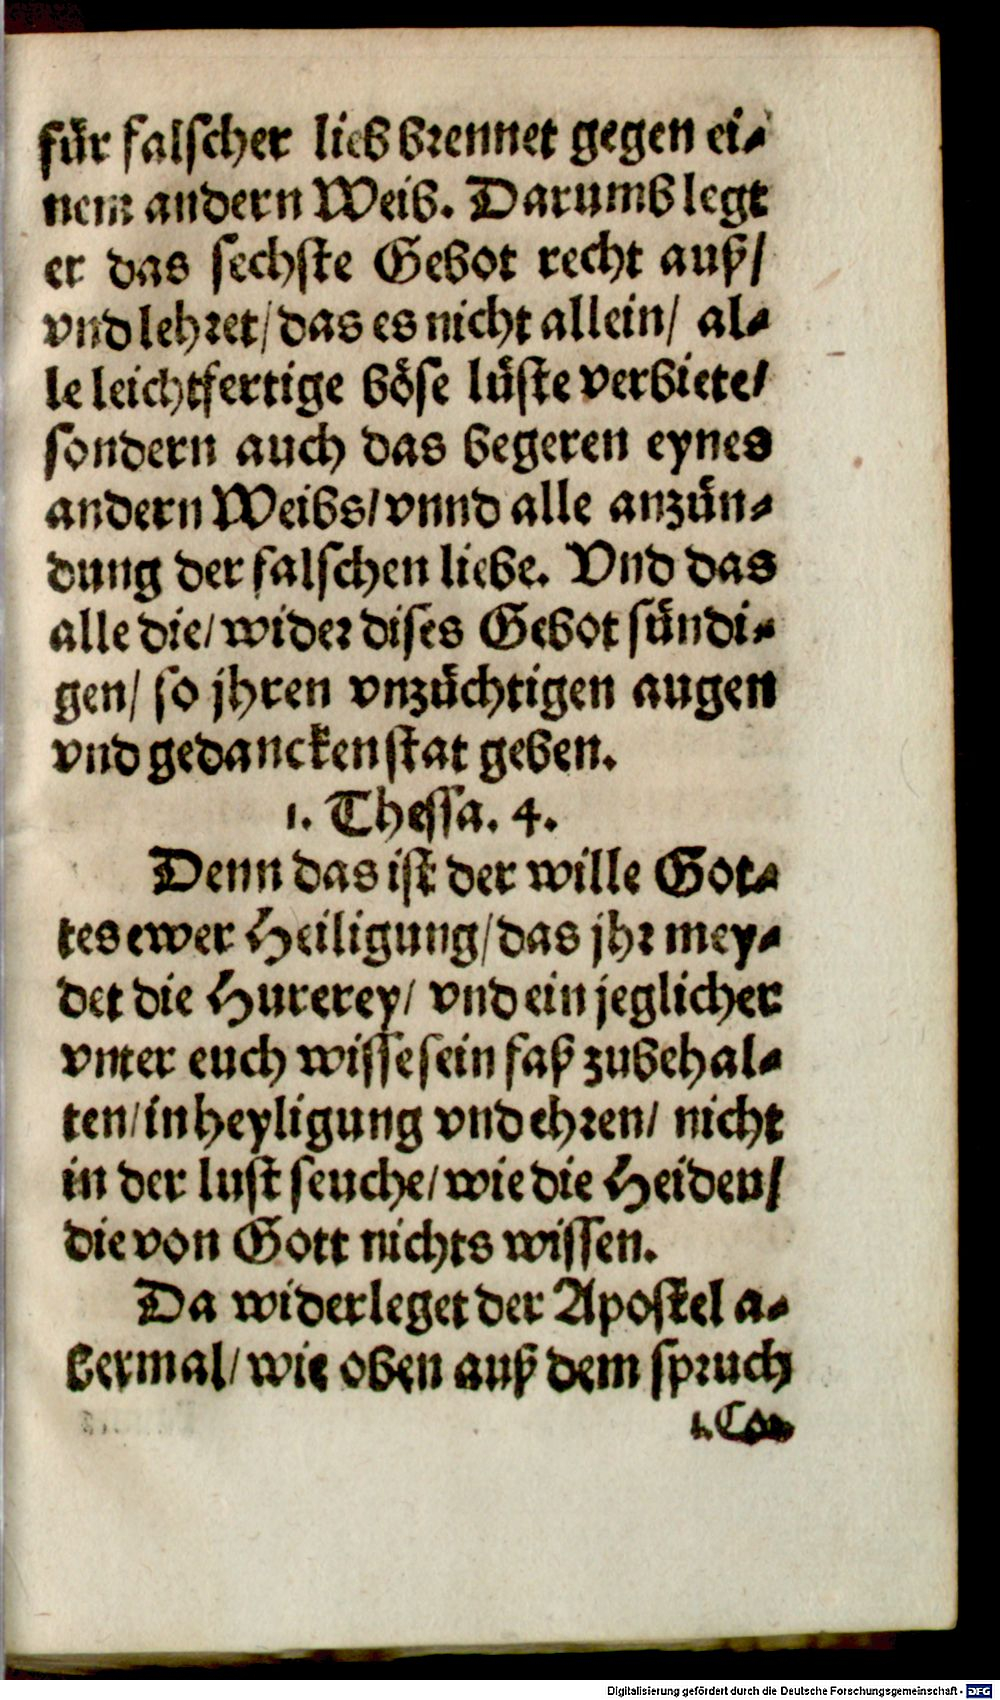 für falscher lieb brennet gegen ei-
nem andern Weib. Darumb legt
er das sechste Gebot recht auß/
vnd lehret/ das es nicht allein/ al-
le leichtfertige böse lüste verbiete/
sondern auch das begeren eynes
andern Weibs/ vnnd alle anzün-
dung der falschen liebe. Vnd das
alle die/ wider dises Gebot sündi-
gen/ so jhren vnzüchtigen augen
vnd gedancken stat geben.
1. Thessa. 4.
Denn das ist der wille Got-
tes ewer Heiligung/ das jhr mey-
det die Hurerey/ vnd ein jeglicher
vnter euch wisse sein faß zubehal-
ten/ in heyligung vnd ehren/ nicht
in der lust seuche/ wie die Heiden/
die von Gott nichts wissen.
Da widerleget der Apostel a-
bermal/ wie oben auß dem spruch
1. Co-
Digitalisierung gefördert durch die Deutsche Forschungsgemeinschaft - DFG